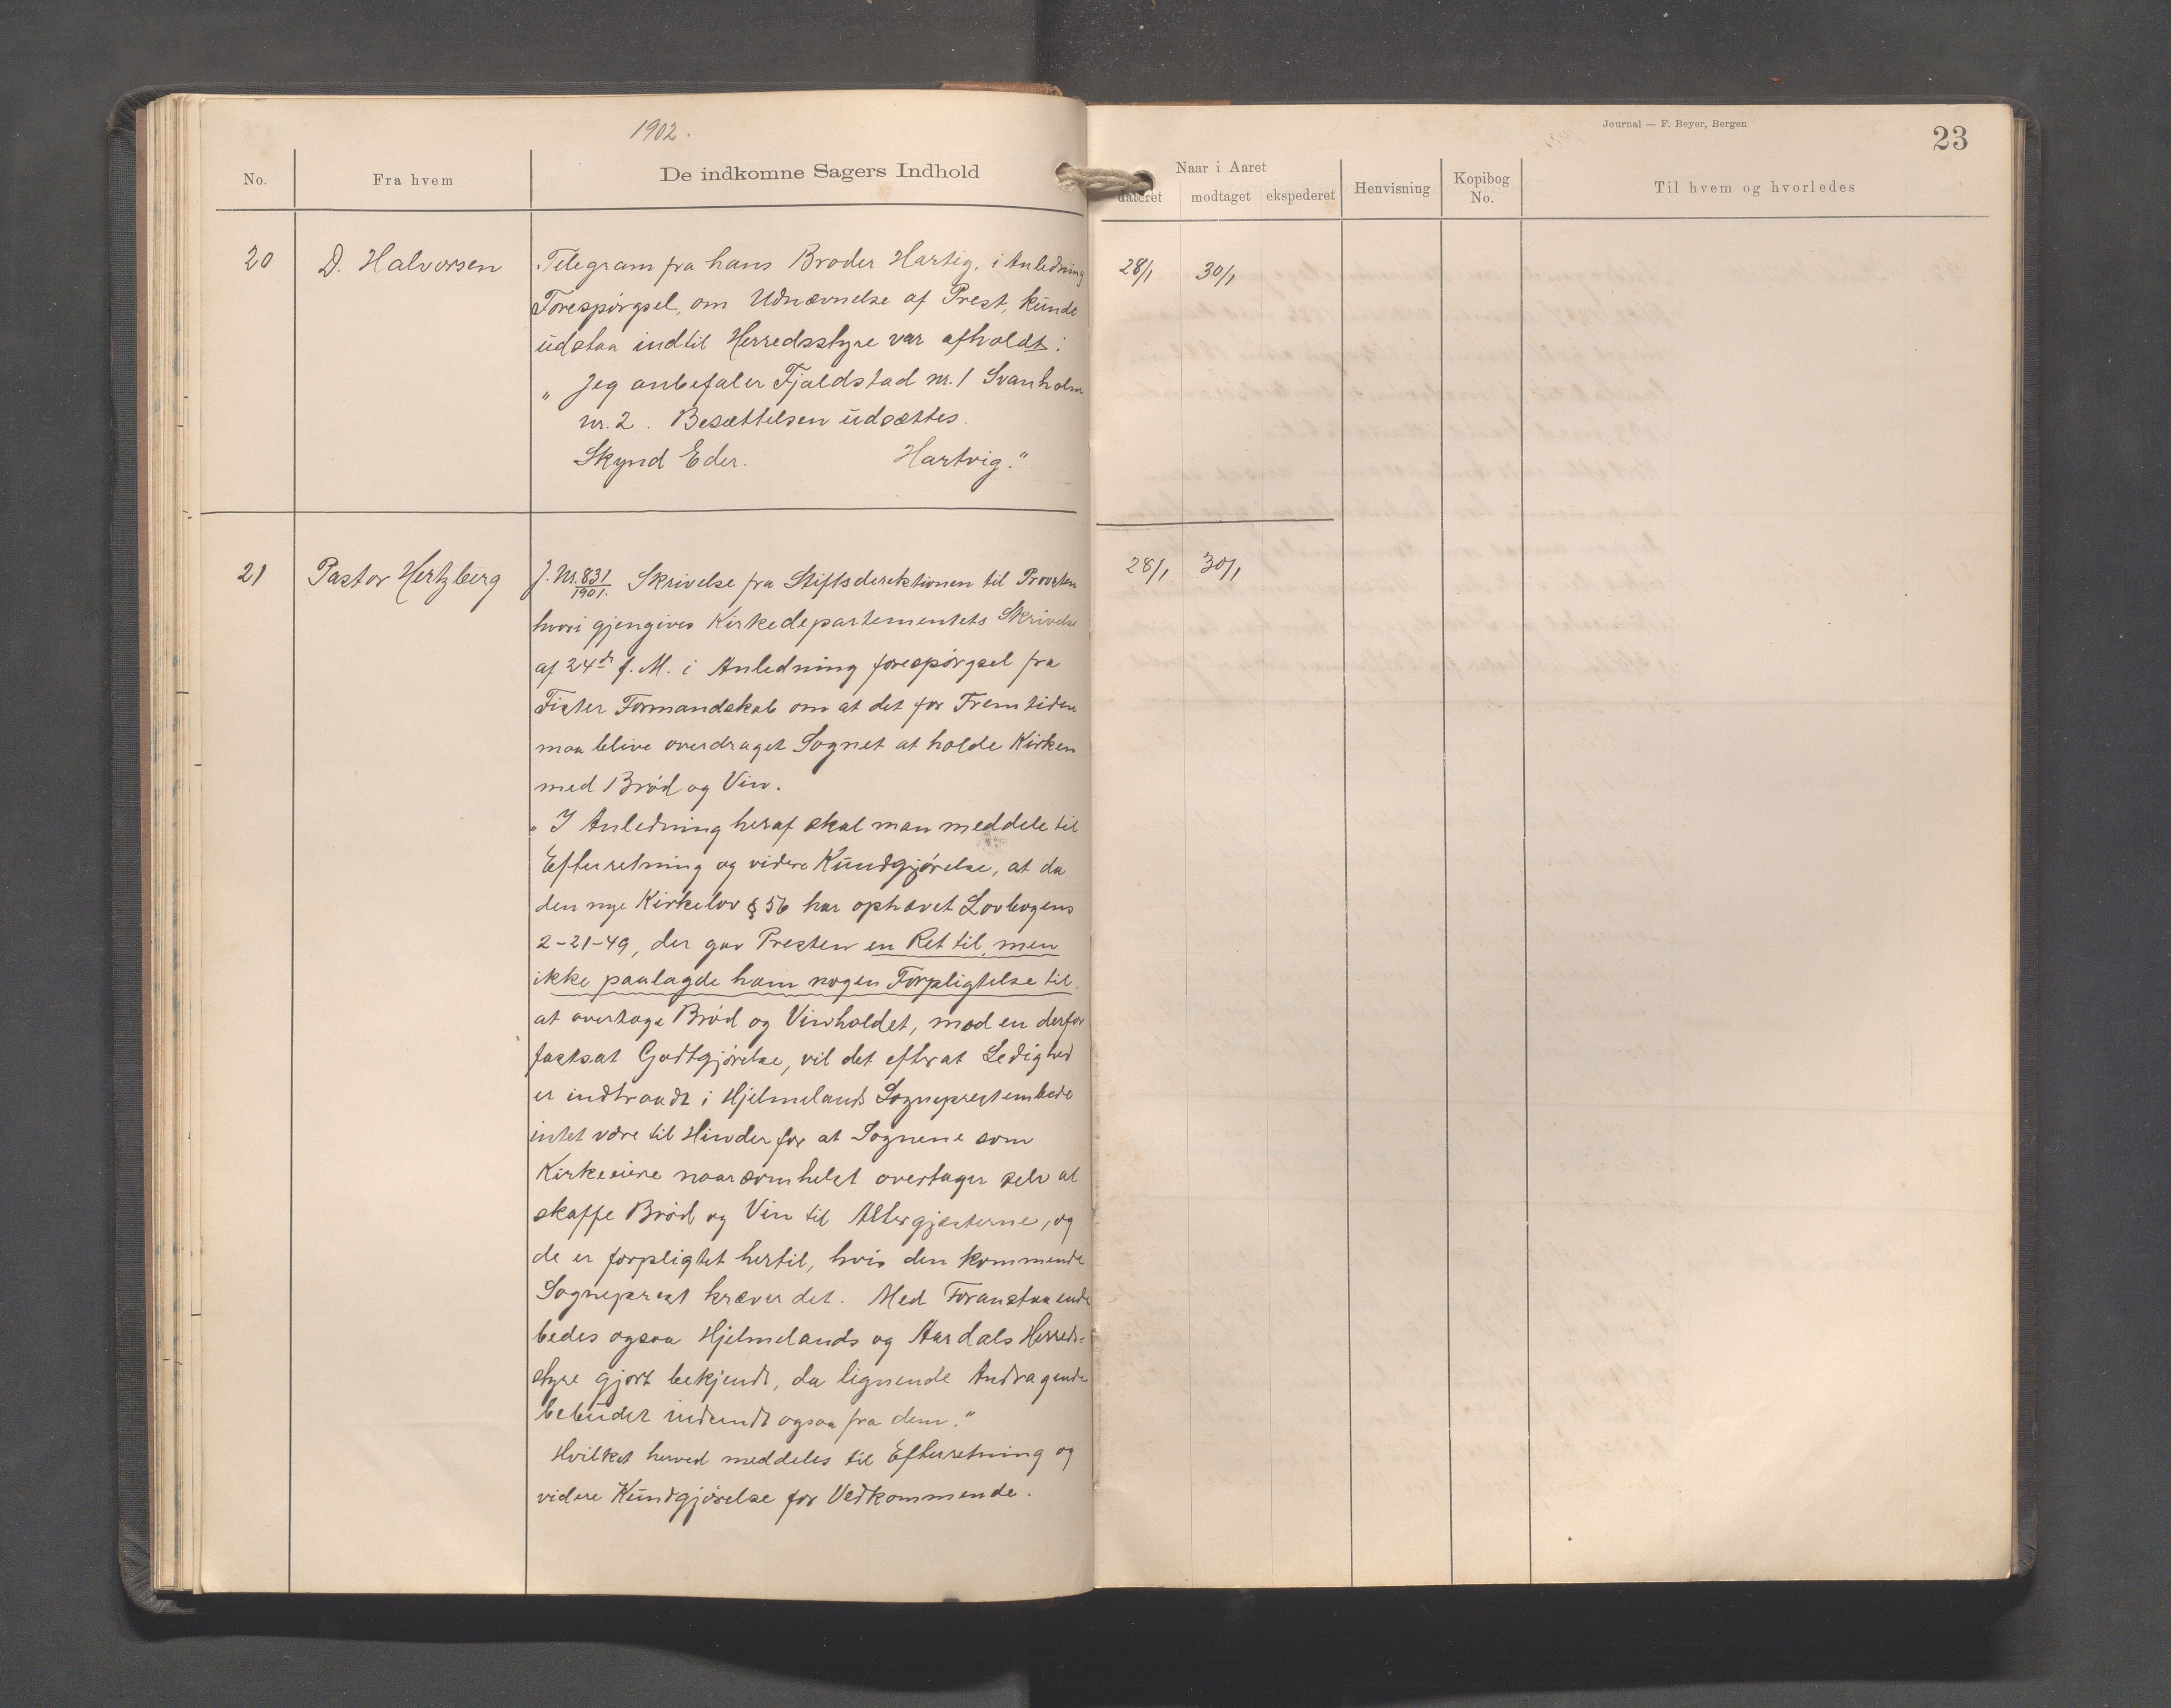 1902.
No.
Fra hvem
De indkomne Sagers Indhold
20
D. Halvorsen
Telegram fra hans Broder Hartig, i Anledning
Forespørgsel, om Udnævnelse af Prest, kunde
udstaa indtil Herredsstyre var afholdt:
„ Jeg anbefaler Fjaldstad nr. 1 Svanholm
nr. 2. Besættelsen udsættes.
Skynd Eder. Hartvig."
21
Pastor Hertzberg
J. Nr. 831/1901. Skrivelse fra Stiftsderektionen til Provsten
hvori gjengives Kirkedepartementets Skrivelse
af 24de f. M. i Anledning forespørgsel fra
Fister Formandskab om at det for Fremtiden
maa blive overdraget Sognet at holde Kirken
med Brød og Vin.
„ I Anledning heraf skal man meddele til
Efterretning og videre Kundgjørelse, at da
den nye Kirkelov § 56 har ophævet Lovbogens
2-21-49, der gav Presten en Ret til, men
ikke paalagde ham nogen Forpligtelse til,
at overtage Brød og Vinholdet, mod en derfor
fastsat Godtgjørelse, vil det efter at Ledighed
er indtraadt i Hjelmelands Sogneprestembede
intet være til Hinder for at Sognene som
Kirkeeiere naarsomhelst overtager selv at
skaffe Brød og Vin til Altergjæsterne, og
de er forpligtet hertil, hvis den kommende
Sogneprest kræver det. Med Foranstaaende
bedes ogsaa Hjelmelands og Aardals Herreds-
styre gjort bekjendt, da lignende Andragende
bebudet indsendt ogsaa fra dem."
Hvilket herved meddeles til Efterretning og
videre Kundgjørelse for Vedkommende.
Journal — F. Beyer, Bergen
23
Naar i Aaret
dateret
modtaget
ekspederet
Henvisning
Kopibog
No.
Til hvem og hvorledes
28/1 30/1
28/1 30/1